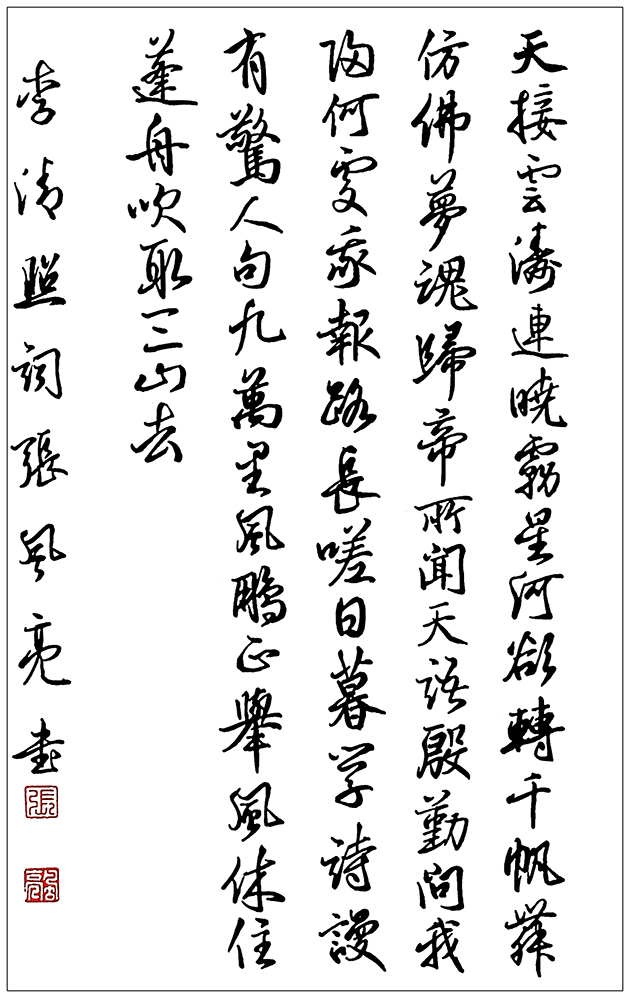 天接雲濤連曉霧星河欲轉千帆舞
仿佛夢魂歸帝所聞天語殷勤問我
归何處我報路長嗟日暮学詩謾
有驚人句九萬里風鵬正舉風休住
蓬舟吹取三山去
李清照詞張風亮書
張